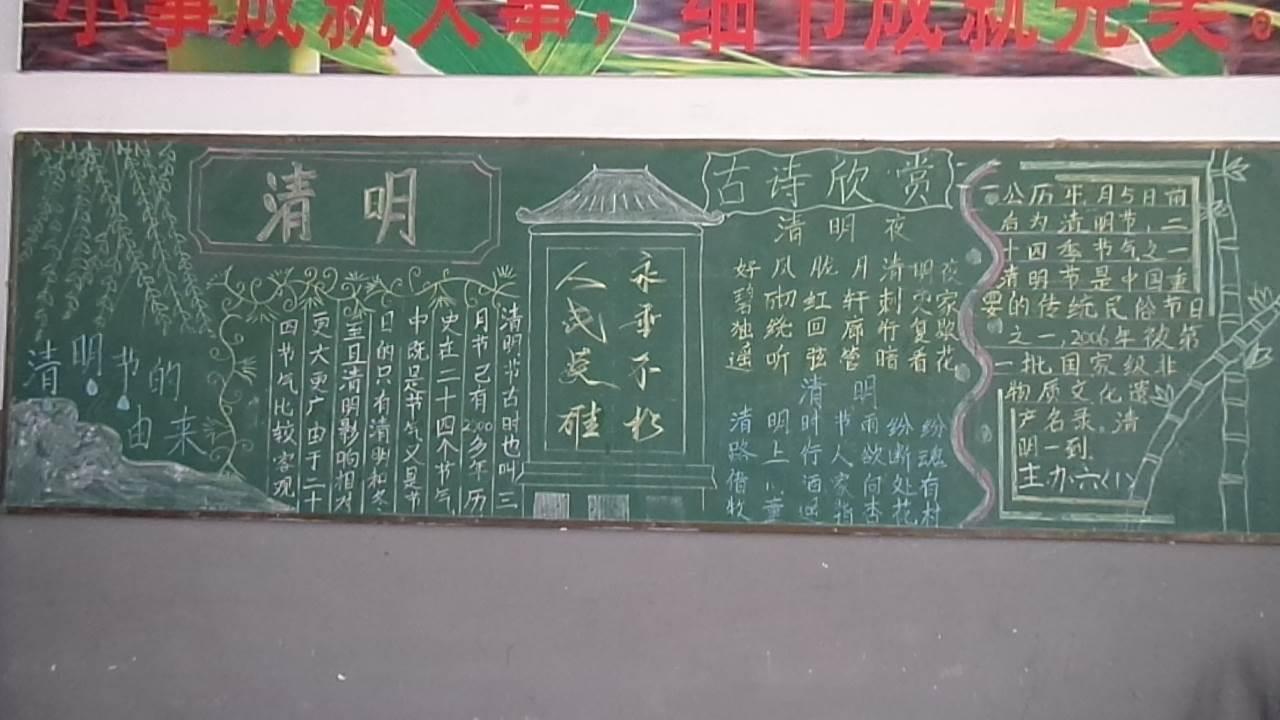 小事成就大事，细节成就完美。
清明
清明节的
由来
清明节古时也叫三
月节已有2000多年历
史在二十四个节气
中既是节气又是节
日的只有清明和冬
至且清明影响相对
更大更广由于二十
四节气比较客观
永垂不朽
人民英雄
古诗欣赏
清明夜
好风胧月清明夜
碧砌红轩刺史家
独绕回廊行复歇
遥听弦管暗看花
清明
清明时节雨纷纷
路上行人欲断魂
借 家 处有
牧童 指杏花村
公历年月5日前
后为清明节，二
十四季节气之一
清明节是中国重
要的传统民俗节日
之一，2006年被第
一批国家级非
物质文化遗
产名录。清
明一到
主办六(1)